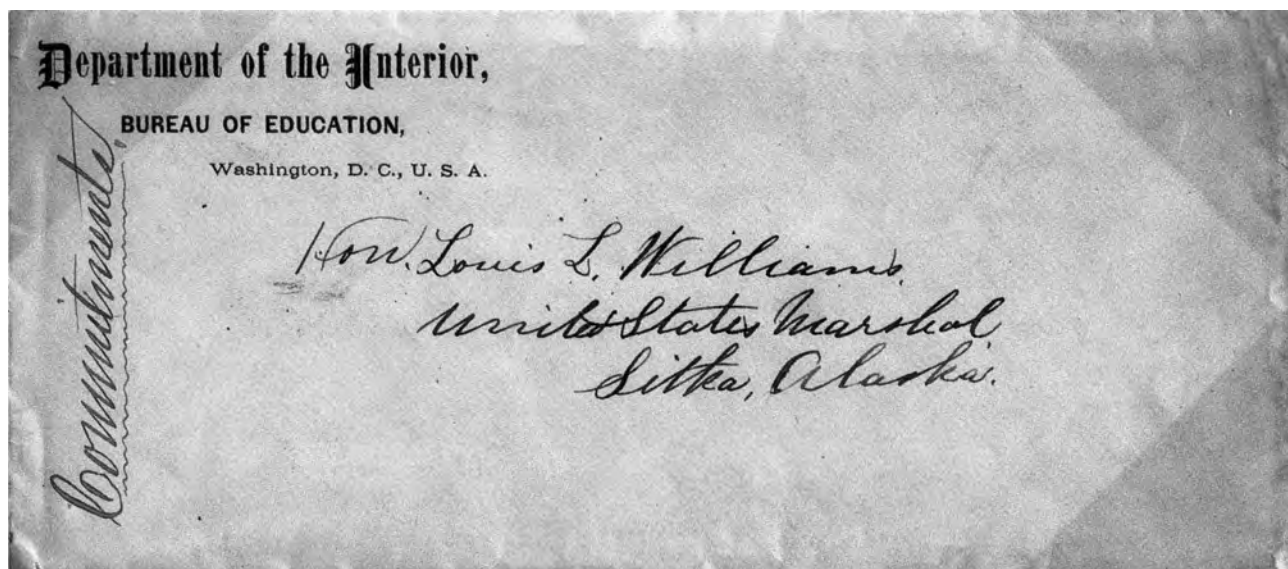 Department of the Interior,
BUREAU OF EDUCATION,
Washington, D. C., U. S. A.
Commitments.
Hon. Louis L. Williams
United States Marshal
Sitka, Alaska.